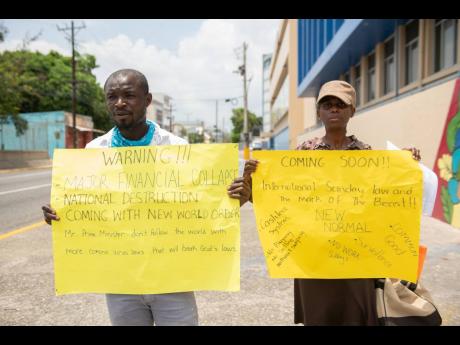 WARNING!!!
- MAJOR FINANCIAL COLLAPSE
- NATIONAL DESTRUCTION
COMING WITH NEW WORLD ORDER
Mr. Prime Minister don't follow the world with
more corona virus laws that will break God's laws
COMING SOON!!
International Sunday law and
the mark of The Beast!!
NEW
NORMAL
Cashless
System
Common
Good
Surveillance
NO WORK
No